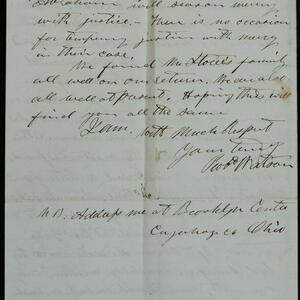 Abraham will season mercy
with justice. - There is no occasion
for tempering justice with mercy
in their case.
We found Mr family
all well on our return. We are all
all well at present. Hoping this will
find you all the same
I am, with Much Respect
Yours truly
Robt Watson
N.B. Address me at Brooklyn Center
Cuyahoga Co Ohio